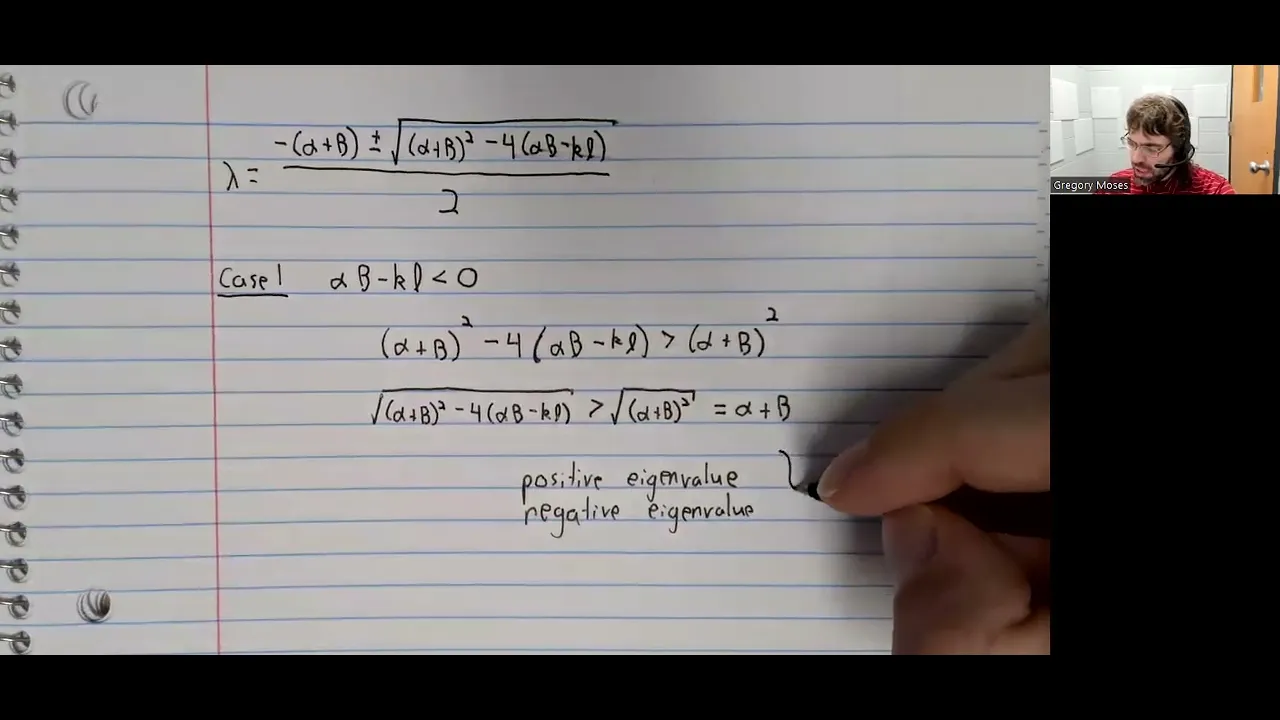 λ = (-(α+β) ± √((α+β)² - 4(αβ-kl))) / 2
Case 1 αβ-kl < 0
(α+β)² - 4(αβ-kl) > (α+β)²
√((α+β)² - 4(αβ-kl)) > √((α+β)²) = α+β
positive eigenvalue
negative eigenvalue
Gregory Moses